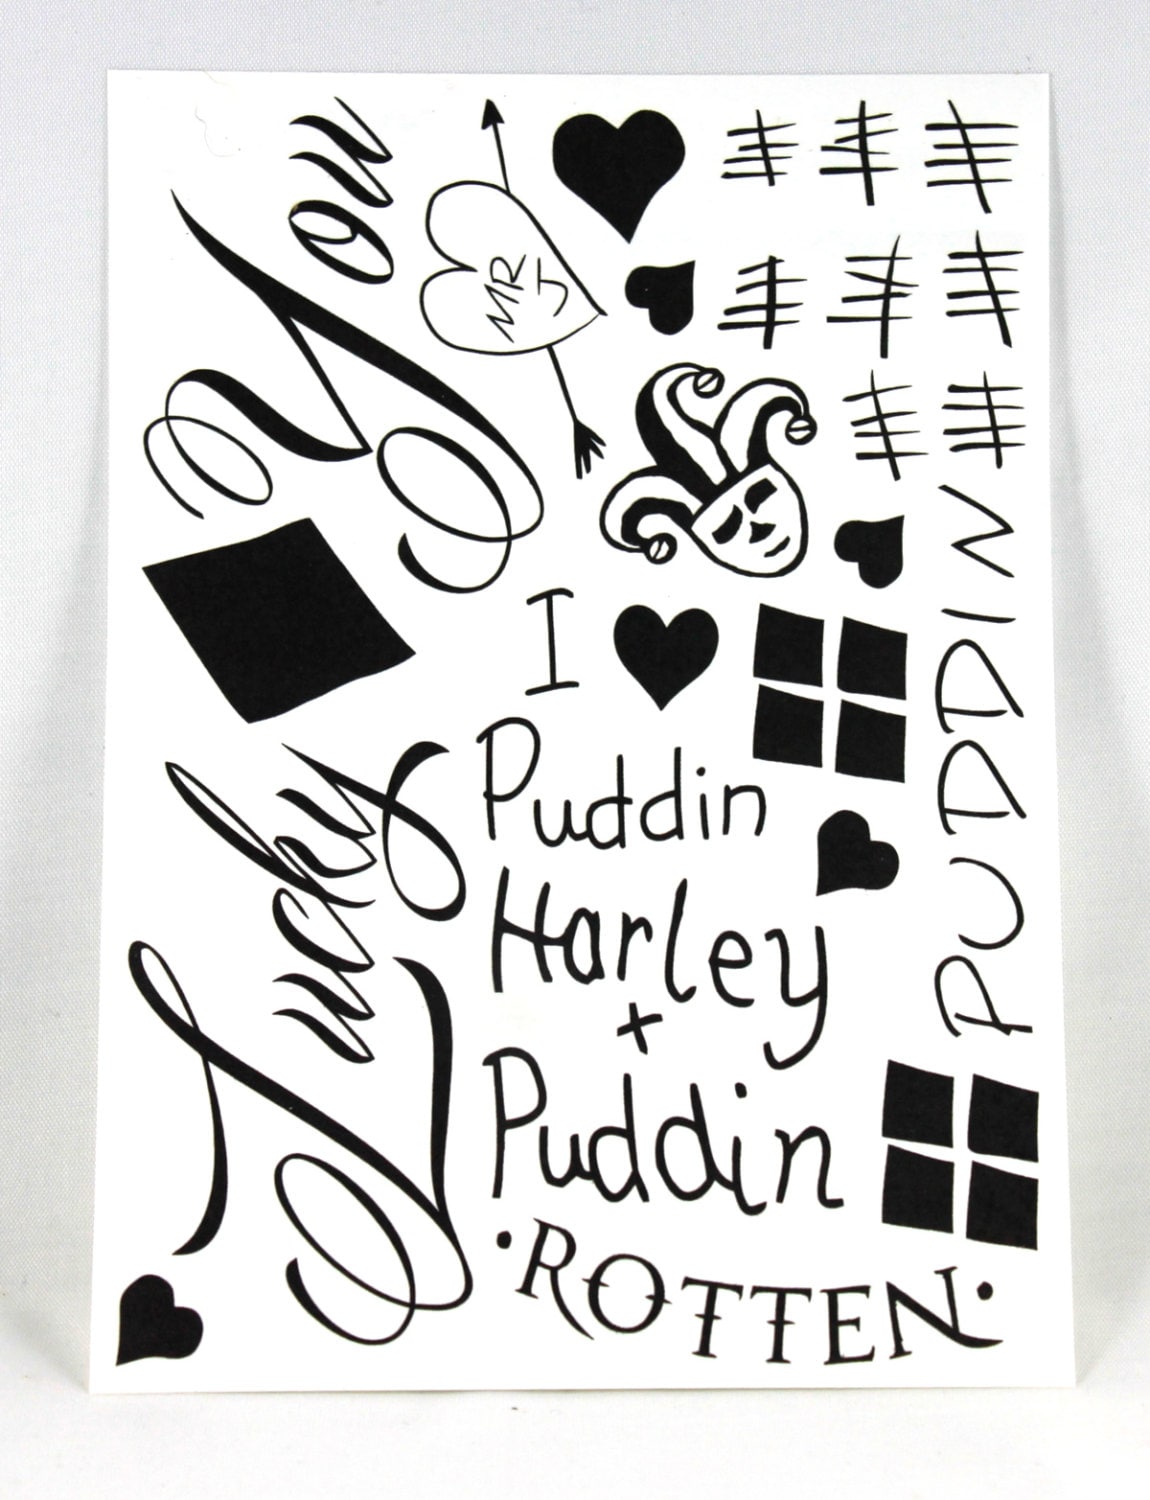 You
MR
J
PUDDIN
I
Puddin
Harley
+
Puddin
Lucky
• ROTTEN •